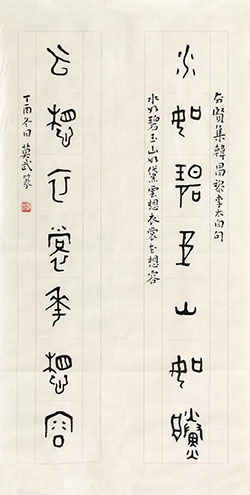 賢集韓昌黎李太白句
水如碧玉山如黛
水如碧玉山如黛雲想衣裳花想容
云想衣裳花想容
丁酉冬日英武篆